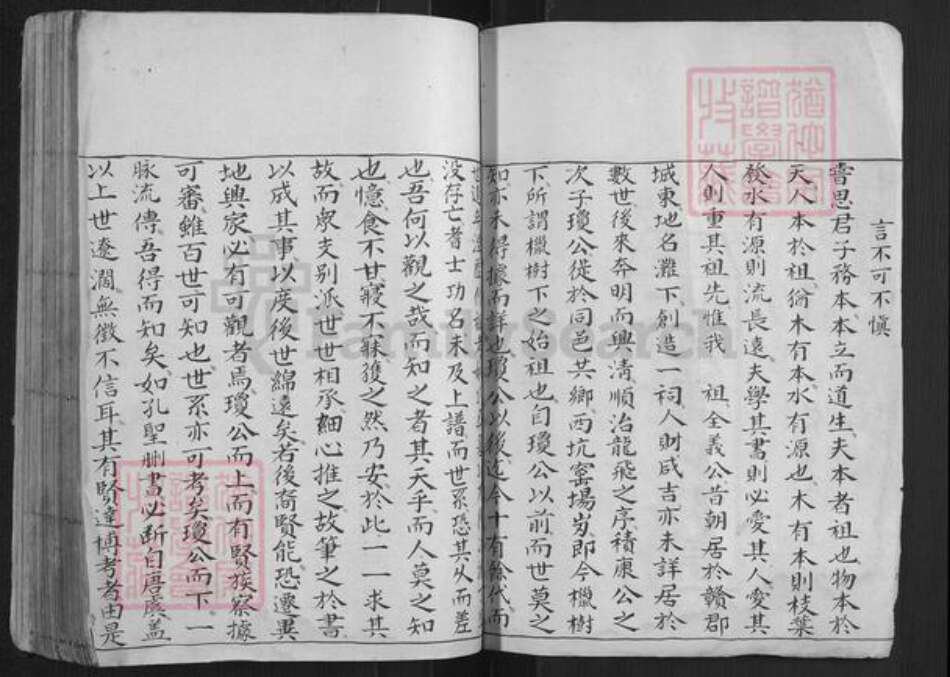 言不可不慎
嘗思君子務本本立而道生夫本者祖也物本於
天人本於祖猶木有本水有源也木有本則枝葉
發水有源則流長遠夫學其書則必愛其人愛其
人則重其祖先惟我　祖全義公昔朝居於贛郡
城東地名灘下創造一祠人財咸吉亦未詳居於
數世後來奔明而興清順治龍飛之序積康公之
次子瓊公徙於同邑共鄉西坑窑場岃即今欖樹
下所謂欖樹下之始祖也自瓊公以前而世莫之
知亦未得據而詳也瓊公以後迄今十有餘代而
没存亡者士功名未及上譜而世系恐其从而差
也吾何以觀之哉而知之者其天乎而人莫之知
也憶食不甘寢不寐獲之然乃安於此一一求其
故而衆支别派世世相承細心推之故筆之於書
以成其事以度後世綿遠矣若後裔賢能恐遷異
地興家必有可觀者焉瓊公而上而有賢族察據
可審雖百世可知也世系亦可考矣瓊公而下一
脉流傳吾得而知矣如孔聖刪書必斷自唐虞蓋
以上世遼濶無徵不信耳其有賢達博考者由是
FamilySearch